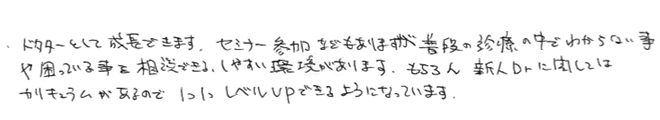 ・ドクターとして成長できます。セミナー参加などもありますが普段の診療の中でわからない事
や困っている事を相談できる、しやすい環境があります。もちろん新人Drに関しては
カリキュラムがあるので1つ1つレベルUPできるようになっています。